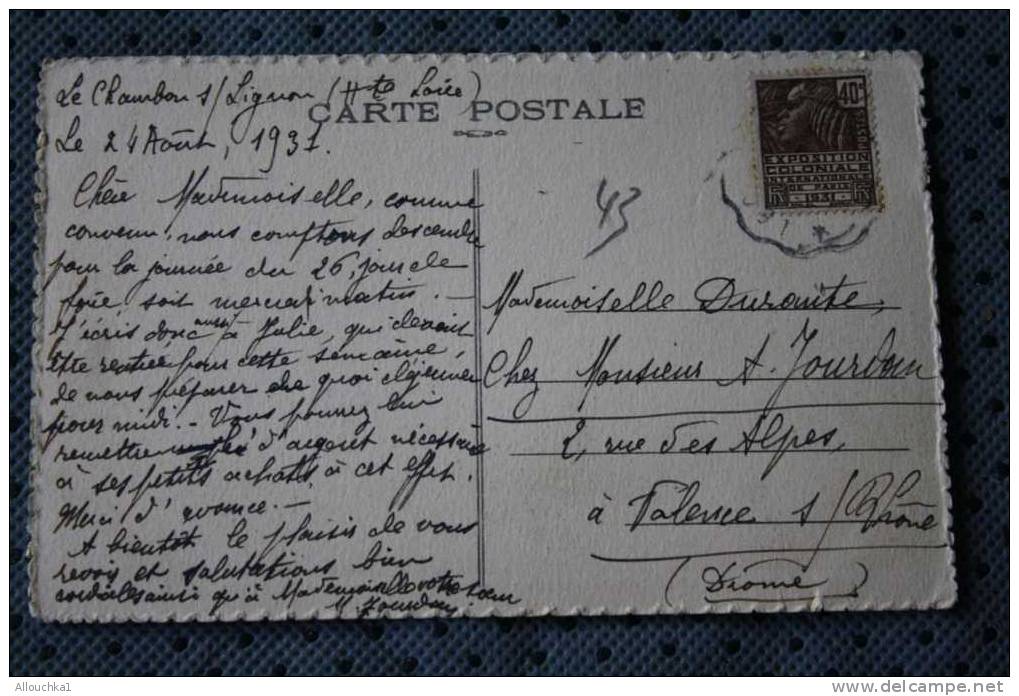 Le Chambon s/ Lignon (Hte Loire)
Le 24 Août, 1931.
CARTE POSTALE
Chère Mademoiselle, comme
convenu, nous comptons descendre
pour la journée du 26, jour de
foire, soit mercredi matin. —
J'écris donc aussi à Julie, qui devait
être rentrée pour cette semaine,
de nous préparer de quoi déjeuner
pour midi. — Vous pourrez lui
remettre d'argent nécessaire
à ses petits achats à cet effet.
Merci d'avance. —
A bientôt le plaisir de vous
revoir et salutations bien
cordiales ainsi qu'à Mademoiselle votre sœur
M. Jourdan
43
40c
POSTES
EXPOSITION
COLONIALE
INTERNATIONALE
DE PARIS
1931
Mademoiselle Durante,
Chez Monsieur A. Jourdan
2, rue des Alpes,
à Valence s/ Rhône
(Drôme)
Allouchka1
http://www.delcampe.net